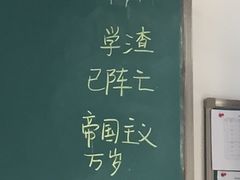 学渣
已阵亡
帝国主义
万岁